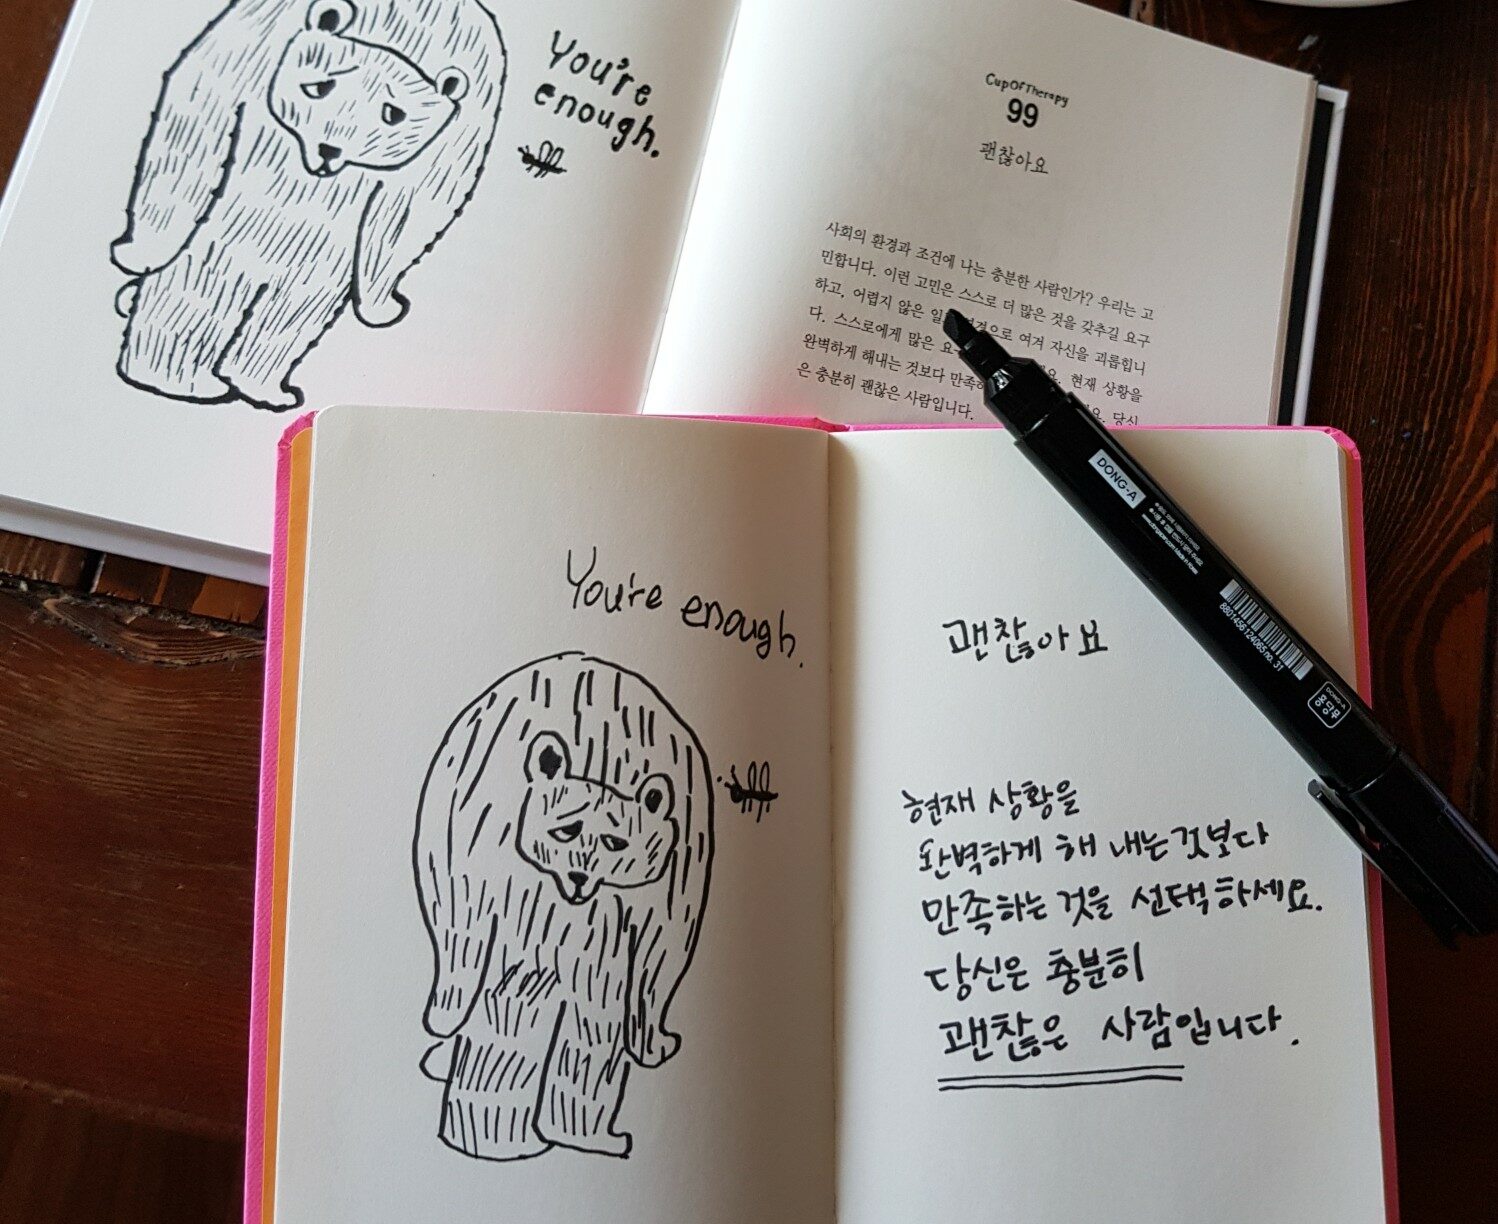 You're
enough.
CupOfTherapy
99
괜찮아요
사회의 환경과 조건에 나는 충분한 사람인가? 우리는 고
민합니다. 이런 고민은 스스로 더 많은 것을 갖추길 요구
하고, 어렵지 않은 여겨 자신을 괴롭힙니
다. 스스로에게 많은 현재 상황을
완벽하게 해내는 것보다 당신
은 충분히 괜찮은 사람입니다.
DONG-A
8801456124065 no. 31
DONG-A
You're enough.
괜찮아요
현재 상황을
완벽하게 해 내는것보다
만족하는 것을 선택하세요.
당신은 충분히
괜찮은 사람입니다.